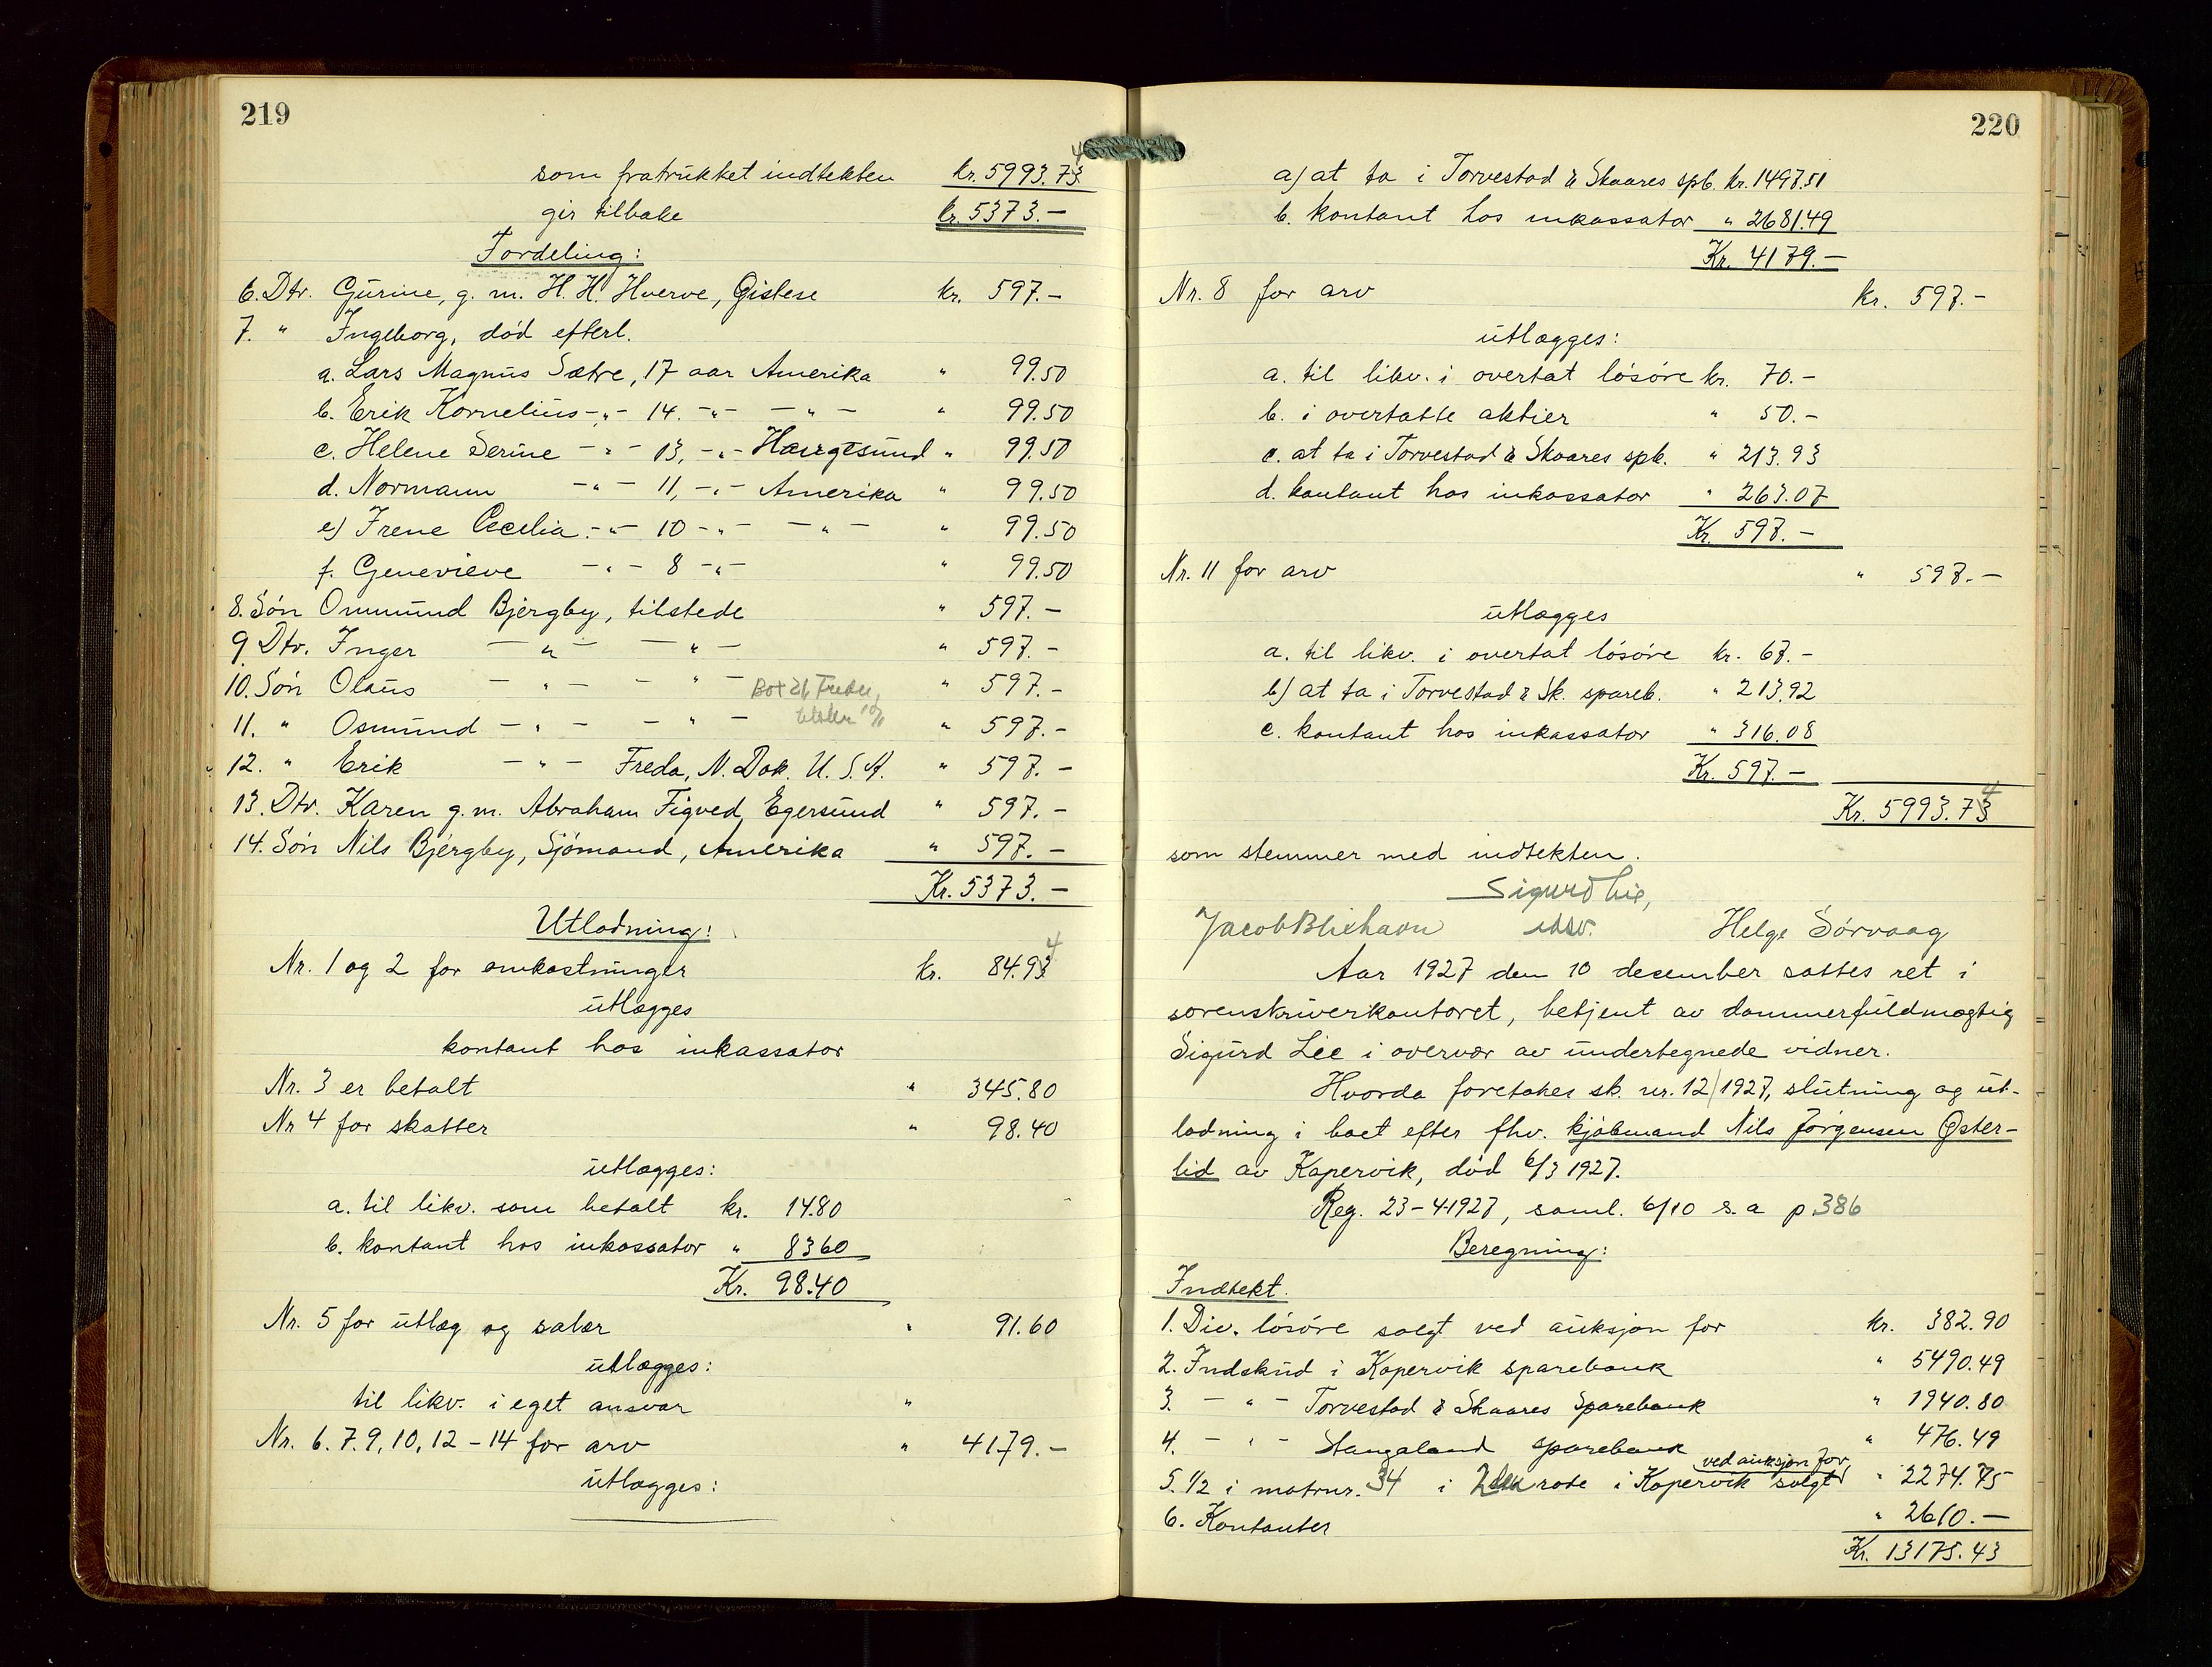 219
som fratrukket indtekten kr. 5993.73 4
gir tilbake kr. 5373.-
Fordeling:
6. Dtr. Gurine, g. m. H. H. Hverve, Gistese kr. 597.-
7. " Ingeborg, död efterl.
a. Lars Magnus Sætre, 17 aar Amerika " 99.50
b. Erik Kornelius -"- 14. -"- -"- " 99.50
c. Helene Serine -"- 13, -"- Haugesund " 99.50
d. Normann -"- 11, -"- Amerika " 99.50
e) Irene Cecilia -"- 10 -"- -"- " 99.50
f. Genevieve -"- 8 -"- " 99.50
8. Søn Ommund Bjergby, tilstede " 597.-
9 Dtr. Inger -"- -"- " 597.-
10. Søn Olaus -"- -"- Box 26, " 597.-
11. " Osmund -"- -"- " 597.-
12. " Erik -"- Freda, N. Dak. U. S. A. " 597.-
13. Dtr. Karen g. m. Abraham Figved, Egersund " 597.-
14. Søn Nils Bjergby, Sjömand, Amerika " 597.-
Kr. 5373.-
Utlodning:
Nr. 1 og 2 for omkostninger kr. 84.93 4
utlægges
kontant hos inkassator
Nr. 3 er betalt " 345.80
Nr 4 for skatter " 98.40
utlægges:
a. til likv. som betalt kr. 14.80
b. kontant hos inkassator " 8360
Kr. 98.40
Nr. 5 for utlæg og salær " 91.60
utlægges:
til likv. i eget ansvar "
Nr. 6. 7. 9, 10, 12 - 14 for arv " 4179.-
utlægges:
220
a) at ta i Torvestad & Skaares spb. kr. 1497.51
b. kontant hos inkassator " 2681.49
Kr. 4179.-
Nr. 8 for arv kr. 597.-
utlægges:
a. til likv. i overtat lösöre kr. 70.-
b. i overtatte aktier " 50.-
c. at ta i Torvestad & Skaares spb. " 213.93
d. kontant hos inkassator " 263.07
Kr. 597.-
Nr. 11 for arv " 597.-
utlægges
a. til likv. i overtat lösöre kr. 67.-
b) at ta i Torvestad & Sk. spareb. " 213.92
c. kontant hos inkassator " 316.08
Kr. 597.-
Kr. 5993.73 4
som stemmer med indtekten.
Sigurd Lie,
Jacob Bliehavn Helge Sörvaag
Aar 1927 den 10 desember sattes ret i
sorenskriverkontoret, betjent av dommerfuldmægtig
Sigurd Lie i overvær av undertegnede vidner.
Hvorda foretokes sk. nr. 12/1927, slutning og ut-
lodning i boet efter fhv. kjöbmand Nils Jørgensen Øster-
lid av Kopervik, död 6/3 1927.
Reg. 23-4-1927, saml. 6/10 s. a p. 386
Beregning:
Indtekt.
1. Div. lösöre solgt ved auksjon for kr. 382.90
2. Indskud i Kopervik sparebank " 5490.49
3. -"- Torvestad & Skaares Sparebank " 1940.80
4. -"- Stangaland sparebank " 476.49
5. 1/2 i matrnr. 34 i 2den rode i Kopervik solgt ved auksjon for " 2274.75
6. Kontanter " 2610.-
Kr. 13175.43